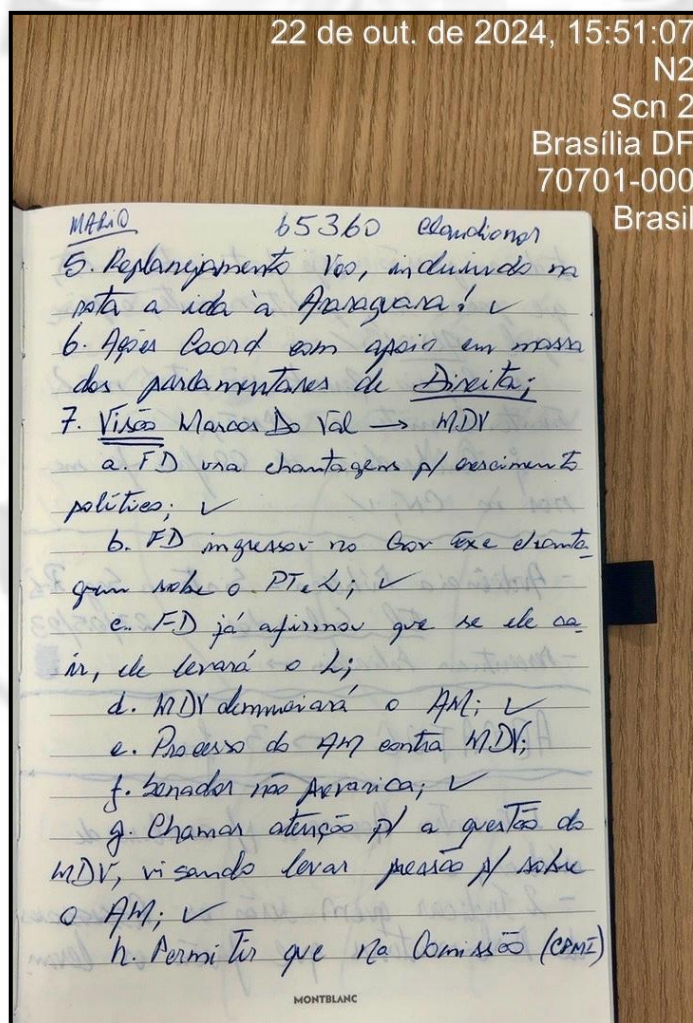 22 de out. de 2024, 15:51:07
N2
Scn 2
Brasília DF
70701-000
Brasil
MARIO 65360 Claudionor
5. Replanejamento Voo, incluindo na
rota a ida à Araraquara! ✓
6. Ações Coord com apoio em massa
dos parlamentares de Direita;
7. Visão Marcos Do Val → MDV
a. FD usa chantagens p/ crescimento
político; ✓
b. FD ingressou no Gov Fexe chanta-
gem sobre o PT e L; ✓
c. FD já afirmou que se ele ca-
ir, ele levará o L;
d. MDV denunciará o AM; ✓
e. Processo do AM contra MDV;
f. Senador não prevarica; ✓
g. Chamar atenção p/ a questão do
MDV, visando levar pressão p/ sobre
o AM; ✓
h. Permitir que na Comissão (CPMI)
MONTBLANC